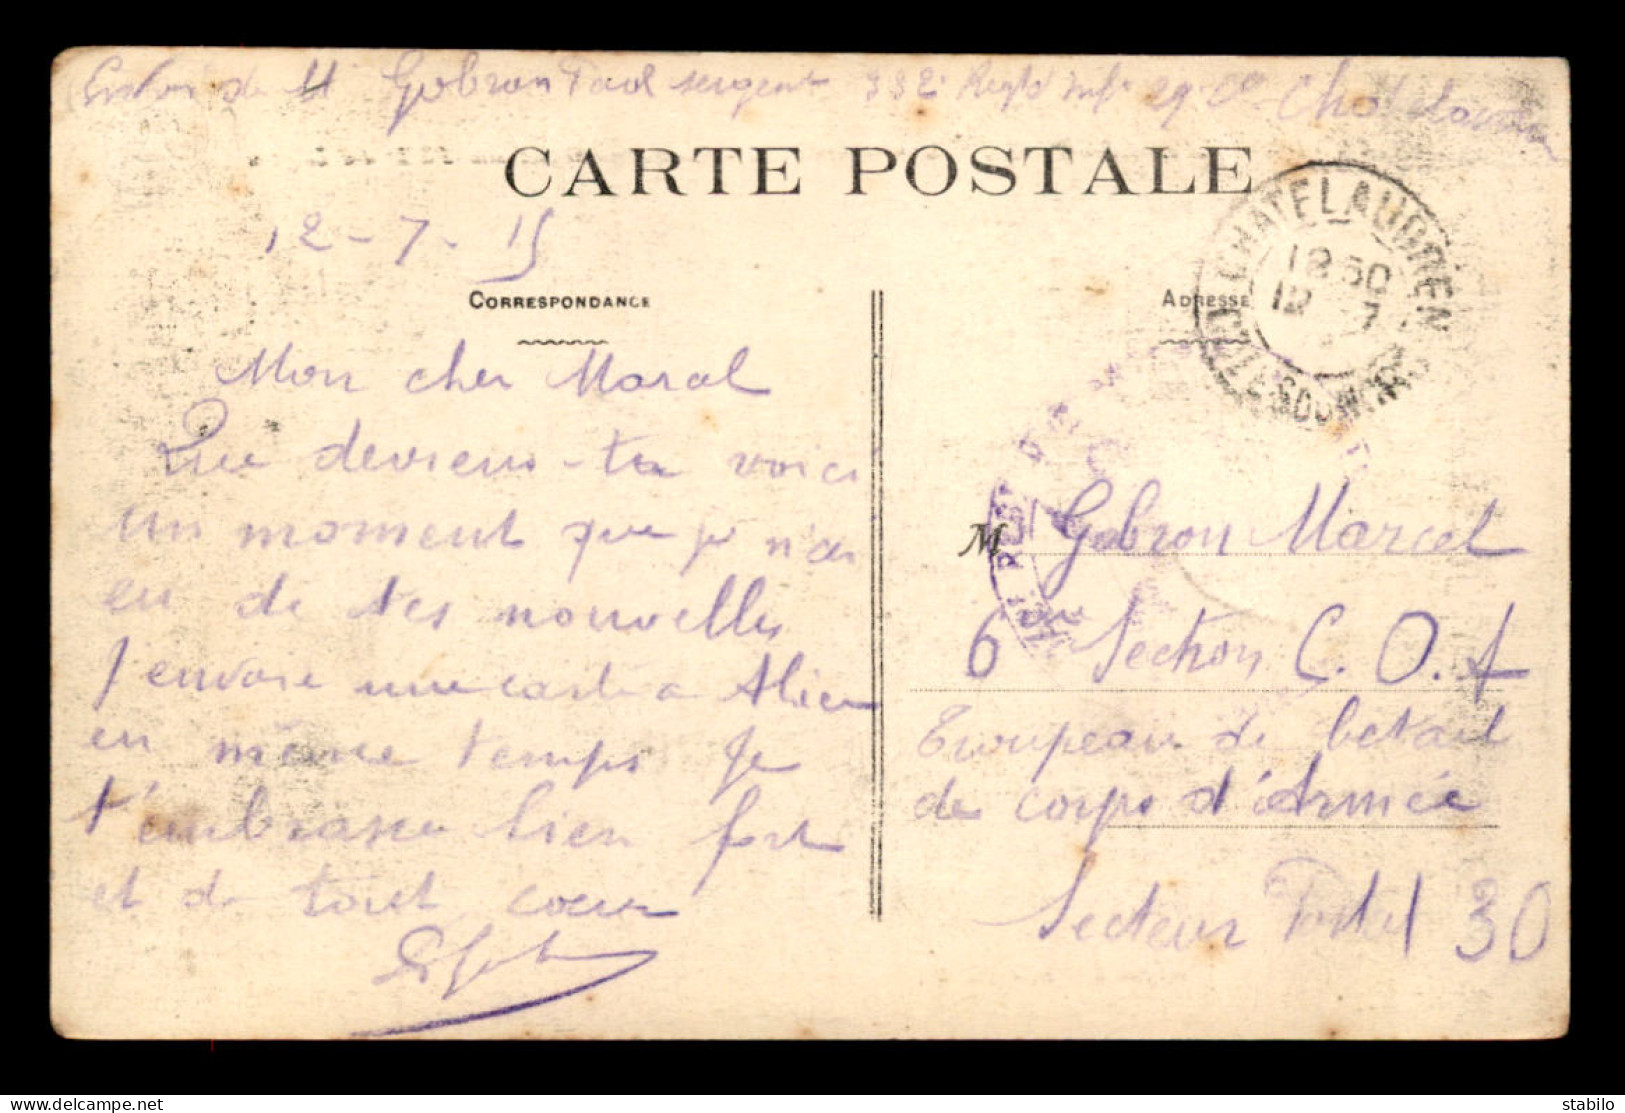 Envoi de M Gobron Paul sergent 332e Regt Inf 29e Cie Chatelaudren
CARTE POSTALE
12-7-15
CHATELAUDREN
12 50
12 -7
CÔTES DU NORD
CORRESPONDANCE
ADRESSE
Mon cher Maral
Que deviens-tu voici
un moment que je n'ai
eu de tes nouvelles
J'envoie une carte a Alice
en même temps Je
t'embrasse bien fort
et de tout coeur
PGob
M Gobron Marcel
6me Section C.O.A
Troupeau de betail
de corps d'Armée
Secteur Postal 30
stabilo